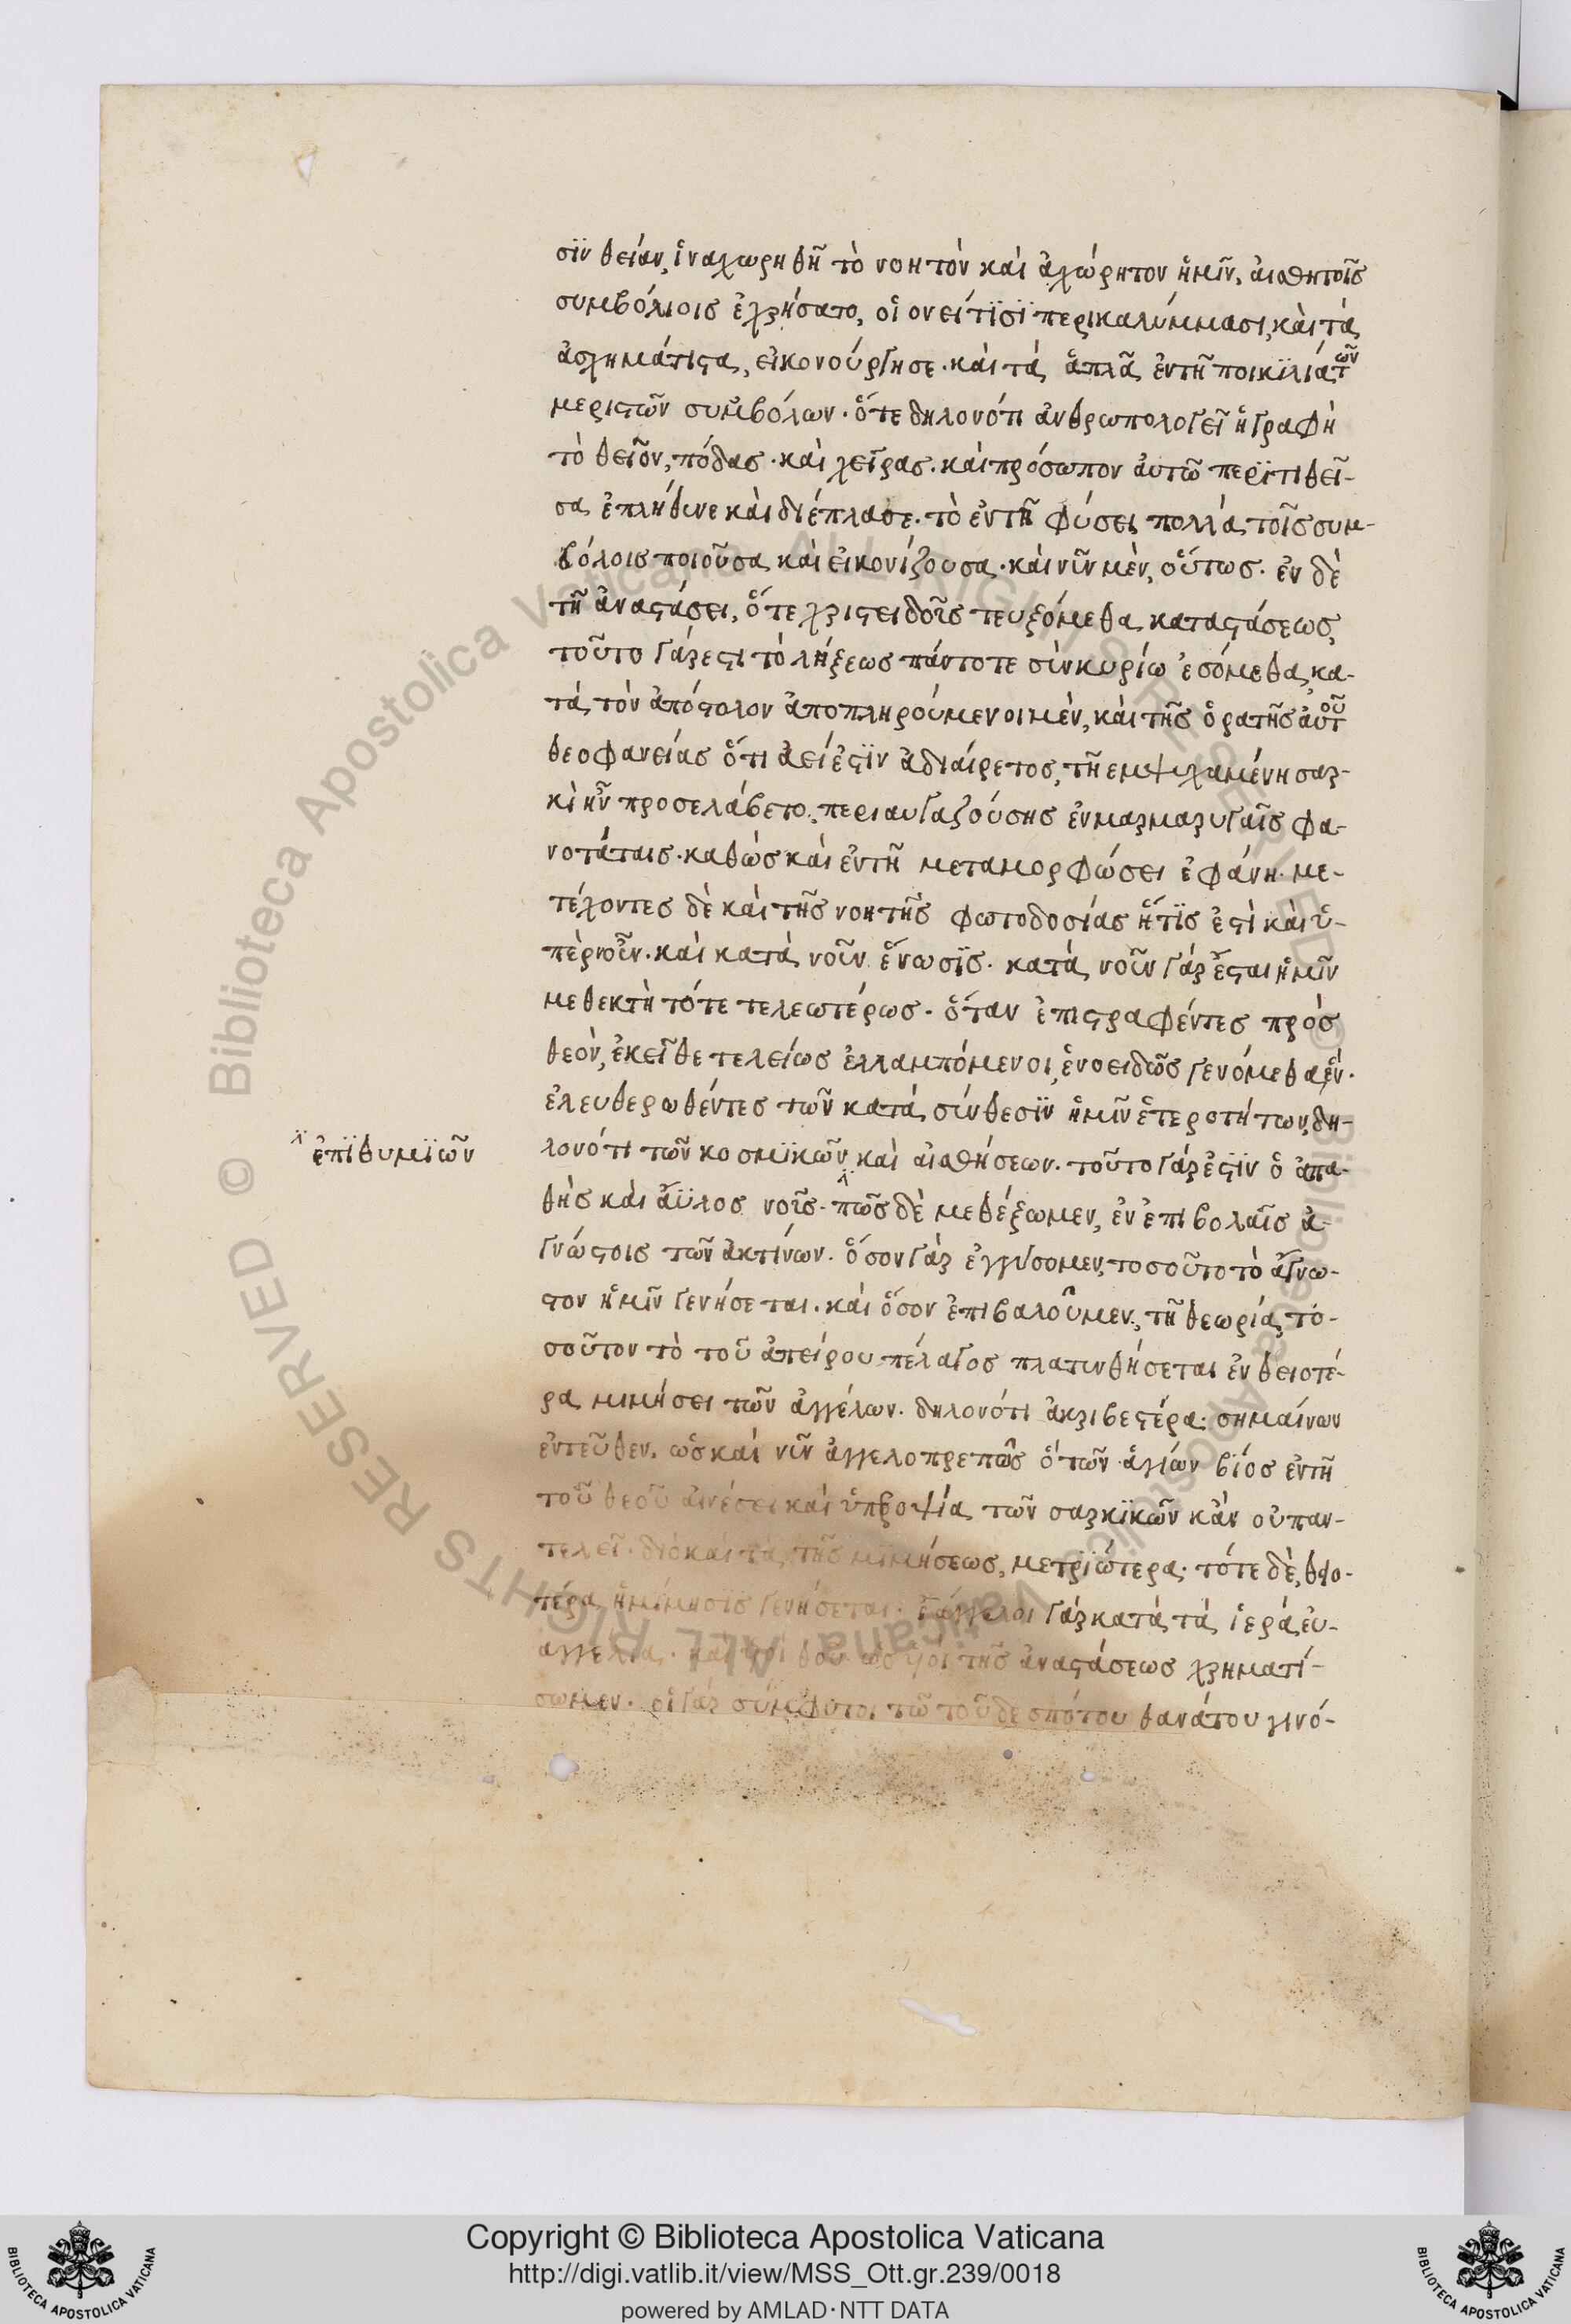 σϊν θείαν, ἵνα χωρηθῆ τὸ νοητὸν καὶ ἀχώρητον ἡμῖν, αἰσθητοῖς
συμβόλοις ἐχρήσατο, οἱονεί τϊσϊ περικαλύμμασι, καὶ τὰ
ἀσχημάτιστα, εἰκονούργησε· καὶ τὰ ἁπλᾶ ἐν τῆ ποικϊλία τῶν
μεριστῶν συμβόλων· ὅτε δηλονότι ἀνθρωπολογεῖ ἡ γραφὴ
τὸ θεῖον, πόδας· καὶ χεῖρας· καὶ πρόσωπον αὐτῶ περϊτιθεῖ-
σα ἐπλήθυνε καὶ διέπλασε· τὸ ἐν τῆ φύσει πολλὰ τοῖς συμ-
βόλοις ποιοῦσα καὶ εἰκονίζουσα· καὶ νῦν μὲν, οὕτως· ἐν δὲ
τῆ ἀναστάσει, ὅτε χριστειδοῖς τευξόμεθα καταστάσεως,
τοῦτο γάρ ἐστι τὸ λήξεως πάντοτε σὺν κυρίω ἐσόμεθα, κα-
τὰ τὸν ἀπόστολον ἀποπληρούμενοι μὲν, καὶ τῆς ὁρατῆς αὐτοῦ
θεοφανείας ὅτι ἀεί ἐστϊν ἀδιαίρετος, τῆ εμψυχαμένη σαρ-
κὶ ἣν προσελάβετο, περιαυγαζούσης ἐν μαρμαρυγαῖς φα-
νοτάταις· καθὼς καὶ ἐν τῆ μεταμορφώσει ἐφάνη· με-
τέχοντες δὲ καὶ τῆς νοητῆς φωτοδοσίας ἥτϊς ἐστὶ καὶ ὑ-
πὲρ νοῦν· καὶ κατὰ νοῦν ἕνωσϊς· κατὰ νοῦν γὰρ ἔσται ἡμῖν
μεθεκτὴ τότε τελεωτέρως· ὅταν ἐπιστραφέντες πρὸς
θεὸν, ἐκεῖθε τελείως ἐλλαμπόμενοι, ἑνοειδῶς γενόμεθα ἕν·
ἐλευθερωθέντες τῶν κατὰ σύνθεσϊν ἡμῖν ἑτεροτήτων, δη-
ἐπϊθυμϊῶν
λονότι τῶν κοσμϊκῶν καὶ αἰσθήσεων· τοῦτο γάρ ἐστϊν ὁ ἀπα-
θὴς καὶ ἄϋλος νοῦς· πῶς δὲ μεθέξωμεν, ἐν ἐπιβολαῖς ἀ-
γνώστοις τῶν ἀκτίνων· ὅσον γὰρ ἐγγίσομεν, τοσοῦτο τὸ ἄγνω-
στον ἡμῖν γενήσεται· καὶ ὅσον ἐπιβαλοῦμεν, τῆ θεωρία, το-
σοῦτον τὸ τοῦ ἀπείρου πέλαγος πλατυνθήσεται ἐν θειοτέ-
ρα μιμήσει τῶν ἀγγέλων· δηλονότι ἀκριβεστέρα· σημαίνων
ἐντεῦθεν, ὡς καὶ νῦν ἀγγελοπρεπῶς ὁ τῶν ἁγίων βίος ἐν τῆ
τοῦ θεοῦ αἰνέσει καὶ ὑπεροψία τῶν σαρκϊκῶν κἂν οὐ παν-
τελεῖ· διὸ καὶ τὰ τῆς μϊμήσεως, μετρϊώτερα· τότε δὲ, θειο-
τέρα ἡ μίμησϊς γενήσεται· ϊσάγγελοι γὰρ κατὰ τὰ ἱερὰ εὐ-
αγγέλια· καὶ υἱοὶ θεοῦ ὡς υἱοὶ τῆς ἀναστάσεως χρηματί-
σωμεν· οἱ γὰρ σύμφυτοι τῶ τοῦ δεσπότου θανάτου γινό-
Copyright © Biblioteca Apostolica Vaticana
http://digi.vatlib.it/view/MSS_Ott.gr.239/0018
powered by AMLAD·NTT DATA